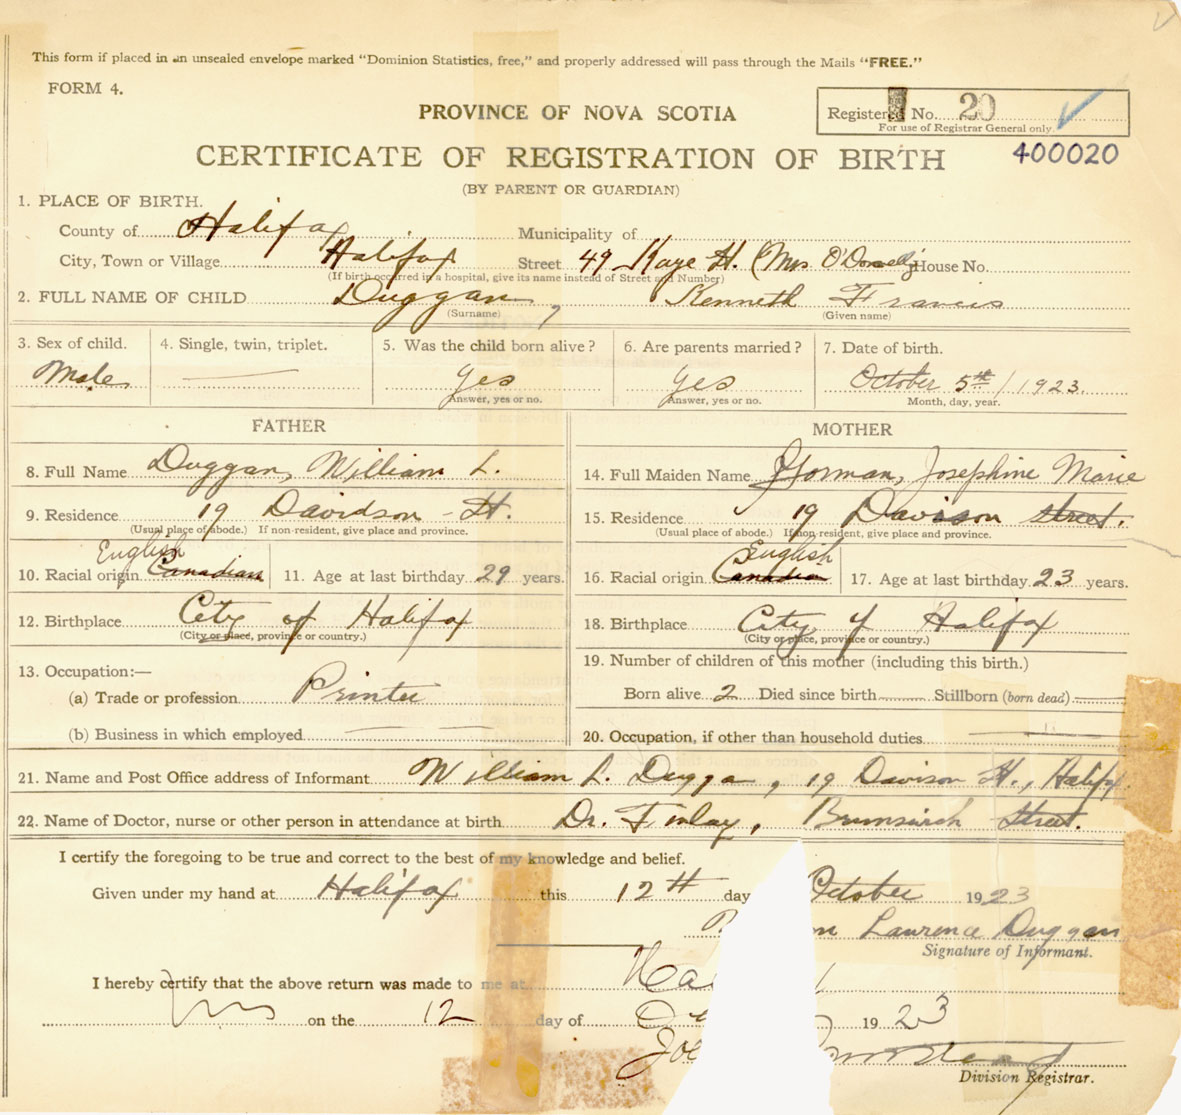 This form if placed in an unsealed envelope marked "Dominion Statistics, free," and properly addressed will pass through the Mails "FREE."
FORM 4.
PROVINCE OF NOVA SCOTIA
Registered No. 20
For use of Registrar General only.
CERTIFICATE OF REGISTRATION OF BIRTH
400020
(BY PARENT OR GUARDIAN)
1. PLACE OF BIRTH.
County of Halifax Municipality of
City, Town or Village Halifax Street 49 Kaye St. (Mrs O'Donnell) House No.
(If birth occurred in a hospital, give its name instead of Street and Number)
2. FULL NAME OF CHILD Duggan, Kenneth Francis
(Surname) (Given name)
3. Sex of child. 4. Single, twin, triplet. 5. Was the child born alive? 6. Are parents married? 7. Date of birth.
Male yes yes October 5th / 1923.
Answer, yes or no. Answer, yes or no. Month, day, year.
FATHER MOTHER
8. Full Name Duggan, William L. 14. Full Maiden Name Gorman, Josephine Marie
9. Residence 19 Davidson St. 15. Residence 19 Davison street.
(Usual place of abode.) If non-resident, give place and province. (Usual place of abode.) If non-resident, give place and province.
English English
10. Racial origin Canadian 11. Age at last birthday 29 years. 16. Racial origin Canadian 17. Age at last birthday 23 years.
12. Birthplace City of Halifax 18. Birthplace City of Halifax
(City or place, province or country.) (City or place, province or country.)
13. Occupation:— 19. Number of children of this mother (including this birth.)
(a) Trade or profession Printer Born alive 2 Died since birth Stillborn (born dead)
(b) Business in which employed 20. Occupation, if other than household duties
21. Name and Post Office address of Informant William L. Dugga, 19 Davison St., Halifax
22. Name of Doctor, nurse or other person in attendance at birth Dr. Finlay, Street.
I certify the foregoing to be true and correct to the best of my knowledge and belief.
Given under my hand at Halifax this 12th day October 1923
Laurence Duggan
Signature of Informant.
I hereby certify that the above return was made to me at
on the 12 day of 1923
Division Registrar.